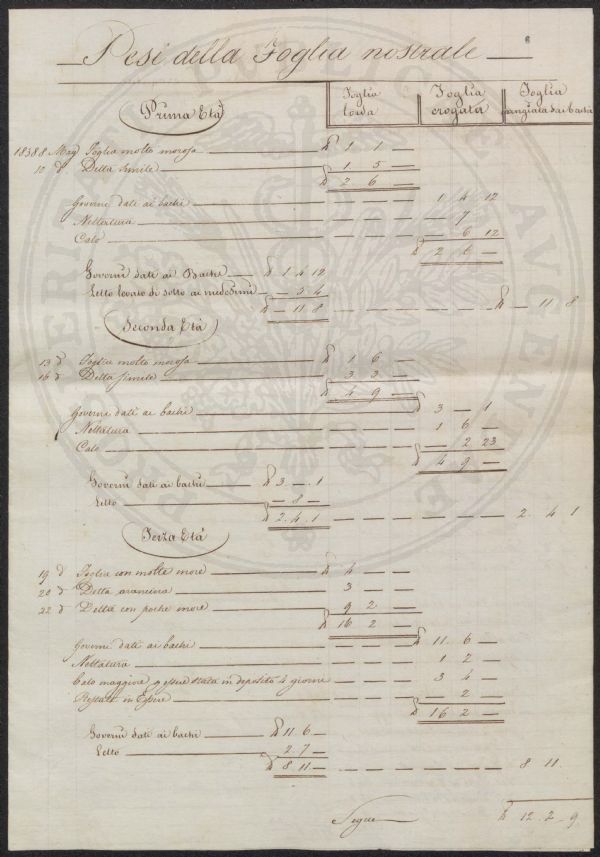 Pesi della Foglia nostrale
Foglia lorda
Foglia erogata
Foglia mangiata dai bachi
Prima Età
1838 8 Mag Foglia molto morosa 1 1 —
10 d Detta simile 1 5 —
2 6 —
Governi dati ai bachi 1 4 12
Nettatura — 7 —
Calo — 6 12
2 6 —
Governi dati ai Bachi 1 4 12
Letto levato di sotto ai medesimi — 3 4
— 11 8 — 11 8
Seconda Età
13 d Foglia molto morosa 1 6 —
16 d Detta simile 3 3 —
4 9 —
Governi dati ai bachi 3 — 1
Nettatura 1 6 —
Calo — 2 23
4 9 —
Governi dati ai bachi 3 — 1
Letto — 8 —
2 4 1 2 4 1
Terza Età
19 d Foglia con molte more 4 — —
20 d Detta aranciera 3 — —
22 d Detta con poche more 9 2 —
16 2 —
Governi dati ai bachi 11 6 —
Nettatura 1 2 —
Calo maggiore p essere stata in deposito 4 giorni 3 4 —
Restata in Essere — 2 —
16 2 —
Governi dati ai bachi 11 6 —
Letto 2 7 —
8 11 — 8 11
Segue 12 2 9